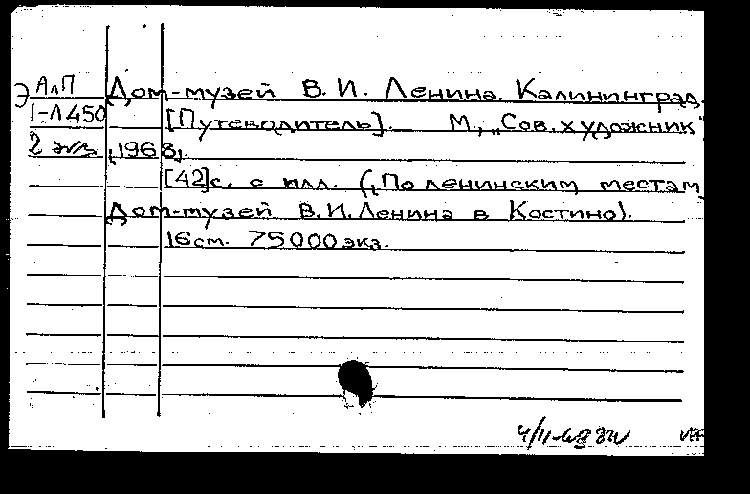 Э АлП Дом-музей В. И. Ленина. Калининград.
1-Л450 [Путеводитель]. М., "Сов. художник"
2 экз [1968].
[42]с. с илл. ("По ленинским местам,
Дом-музей В.И. Ленина в Костино).
16 см. 75000 экз.